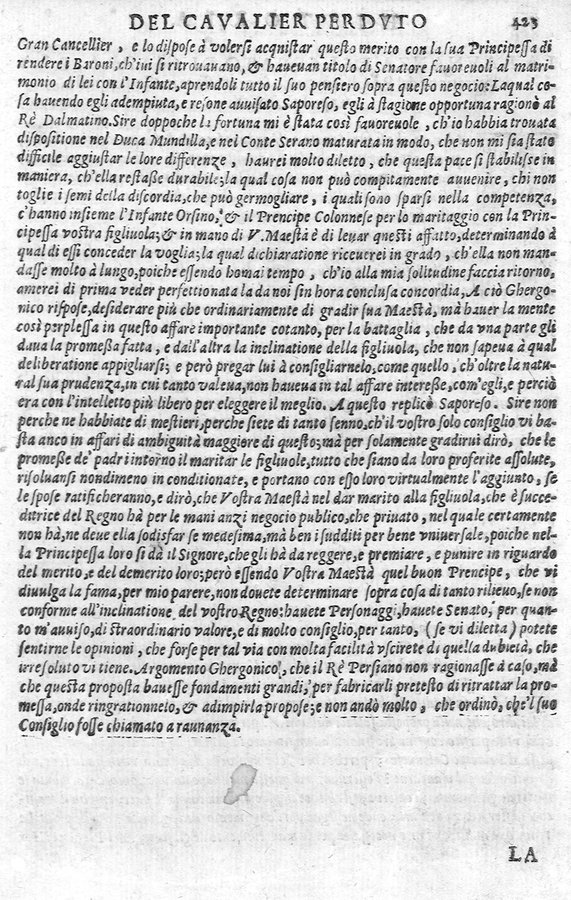 DEL CAVALIER PERDVTO 423
Gran Cancellier, e lo dispose à volersi acquistar questo merito con la sua Principessa di
rendere i Baroni, ch'iui si ritrouauano, & haueuan titolo di Senatore fauoreuoli al matri-
monio di lei con l'Infante, aprendoli tutto il suo pensiero sopra questo negocio: Laqual co-
sa hauendo egli adempiuta, e resone auuisato Saporeso, egli à stagione opportuna ragionò al
Rè Dalmatino. Sire doppoche la fortuna mi è stata così fauoreuole, ch'io habbia trouata
dispositione nel Duca Mundilla, e nel Conte Serano maturata in modo, che non mi sia stato
difficile aggiustar le lore differenze, haurei molto diletto, che questa pace si stabilisse in
maniera, ch'ella restasse durabile; la qual cosa non può compitamente auuenire, chi non
toglie i semi della discordia, che può germogliare, i quali sono sparsi nella competenza,
c'hanno insieme l'Infante Orsino, & il Prencipe Colonnese per lo maritaggio con la Prin-
cipessa vostra figliuola; & in mano di V. Maestà è di leuar questi affatto, determinando à
qual di essi conceder la voglia; la qual dichiaratione riceuerei in grado, ch'ella non man-
dasse molto à lungo, poiche essendo homai tempo, ch'io alla mia solitudine faccia ritorno,
amerei di prima veder perfettionata la da noi sin hora conclusa concordia, A ciò Ghergo-
nico rispose, desiderare più che ordinariamente di gradir sua Maestà, mà hauer la mente
così perplessa in questo affare importante cotanto, per la battaglia, che da vna parte gli
daua la promessa fatta, e dall'altra la inclinatione della figliuola, che non sapeua à qual
deliberatione appigliarsi; e però pregar lui à consigliarnelo, come quello, ch'oltre la natu-
ral sua prudenza, in cui tanto valeua, non haueua in tal affare interesse, com'egli, e perciò
era con l'intelletto più libero per eleggere il meglio. A questo replicò Saporeso. Sire non
perche ne habbiate di mestieri, perche siete di tanto senno, ch'il vostro solo consiglio vi ba-
sta anco in affari di ambiguità maggiore di questo; mà per solamente gradirui dirò, che le
promesse de' padri intorno il maritar le figliuole, tutto che siano da loro proferite assolute,
risoluansi nondimeno in conditionate, e portano con esso loro virtualmente l'aggiunto, se
le spose ratificheranno, e dirò, che Vostra Maestà nel dar marito alla figliuola, che è succe-
ditrice del Regno hà per le mani anzi negocio publico, che priuato, nel quale certamente
non hà, ne deue ella sodisfar se medesima, mà ben i sudditi per bene vniuersale, poiche nel-
la Principessa loro si dà il Signore, che gli hà da reggere, e premiare, e punire in riguardo
del merito, e del demerito loro; però essendo Vostra Maestà quel buon Prencipe, che vi
diuulga la fama, per mio parere, non douete determinare sopra cosa di tanto rilieuo, se non
conforme all'inclinatione del vostro Regno: hauete Personaggi, hauete Senato, per quan-
to m'auuiso, di straordinario valore, e di molto consiglio, per tanto, (se vi diletta) potete
sentirne le opinioni, che forse per tal via con molta facilità vscirete di quella dubietà, che
irresoluto vi tiene. Argomento Ghergonico, che il Rè Persiano non ragionasse à caso, mà
che questa proposta hauesse fondamenti grandi, per fabricarli pretesto di ritrattar la pro-
messa, onde ringrationnelo, & adimpir la propose; e non andò molto, che ordinò, che'l suo
Consiglio fosse chiamato a raunanza.
LA